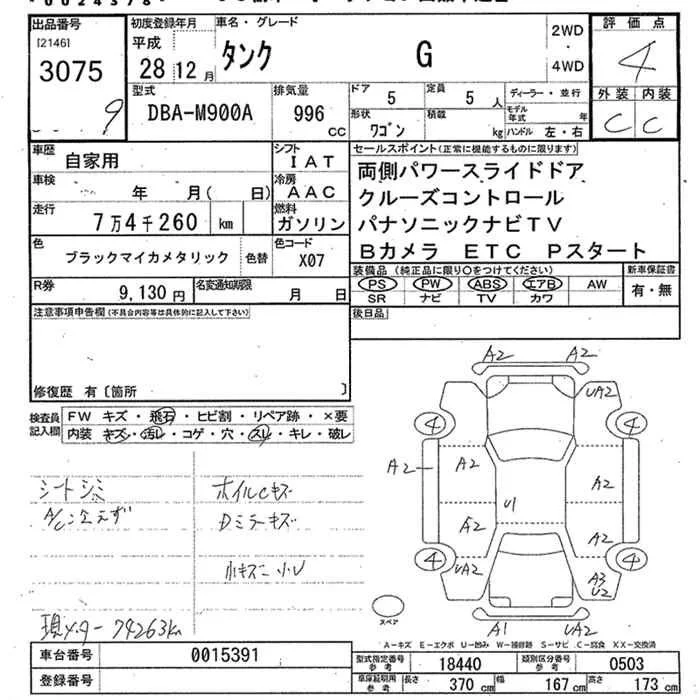 出品番号
[2146]
3075
9
初度登録年月
平成
28 12 月
車名・グレード
タンク G
2WD
・
4WD
評価点
4
外装 内装
C C
型式
DBA-M900A
排気量
996
CC
ドア
5
定員
5 人
形状
ワゴン
積載
kg
ディーラー・並行
モデル年式 年
ハンドル 左・右
車歴
自家用
シフト
IAT
車検
年 月( 日)
冷房
AAC
走行
7万4千260 km
燃料
ガソリン
色
ブラックマイカメタリック
色替
色コード
X07
R券
9,130 円
名変通知期限
月 日
セールスポイント(正常に機能するものに限ります)
両側パワースライドドア
クルーズコントロール
パナソニックナビTV
Bカメラ ETC Pスタート
装備品 (純正品に限り○をつけてください)
PS PW ABS エアB AW
SR ナビ TV カワ
新車保証書
有・無
後日品
注意事項申告欄(不具合内容等は具体的に記入して下さい)
修復歴 有〔箇所 〕
検査員
記入欄
FW キズ・飛石・ヒビ割・リペア跡・×要
内装 キズ・汚レ・コゲ・穴・スレ・キレ・破レ
シートシミ
ホイルCキズ
Dミラーキズ
小キズ 小U
現メーター 74263km
A2 A2
UA2
4 4
A2
A2
A2
U1
A2
A2
4 4
UA2
A3
U2
A1 UA2
スペア
A-キズ E-エクボ U-凹み W-補修跡 S-サビ C-腐食 XX-交換済
車台番号
0015391
登録番号
型式指定番号
参考
18440
類別区分番号
参考
0503
車庫証明用
参考
長さ 370 cm 幅 167 cm 高さ 173 cm